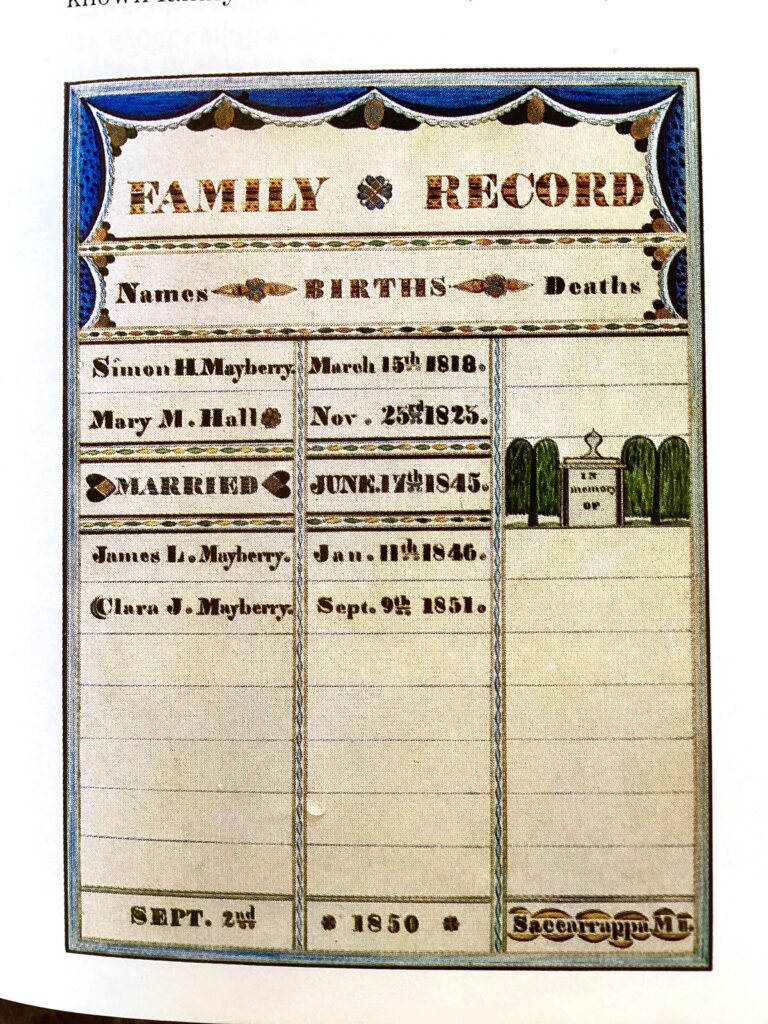 known family
FAMILY RECORD
Names BIRTHS Deaths
Simon H. Mayberry. March 15th 1818.
Mary M. Hall Nov. 25rd 1825.
MARRIED JUNE. 17th 1845.
IN
memory
OF
James L. Mayberry. Jan. 11th 1846.
Clara J. Mayberry. Sept. 9th 1851.
SEPT. 2nd 1850 Saccarrappa, Me.